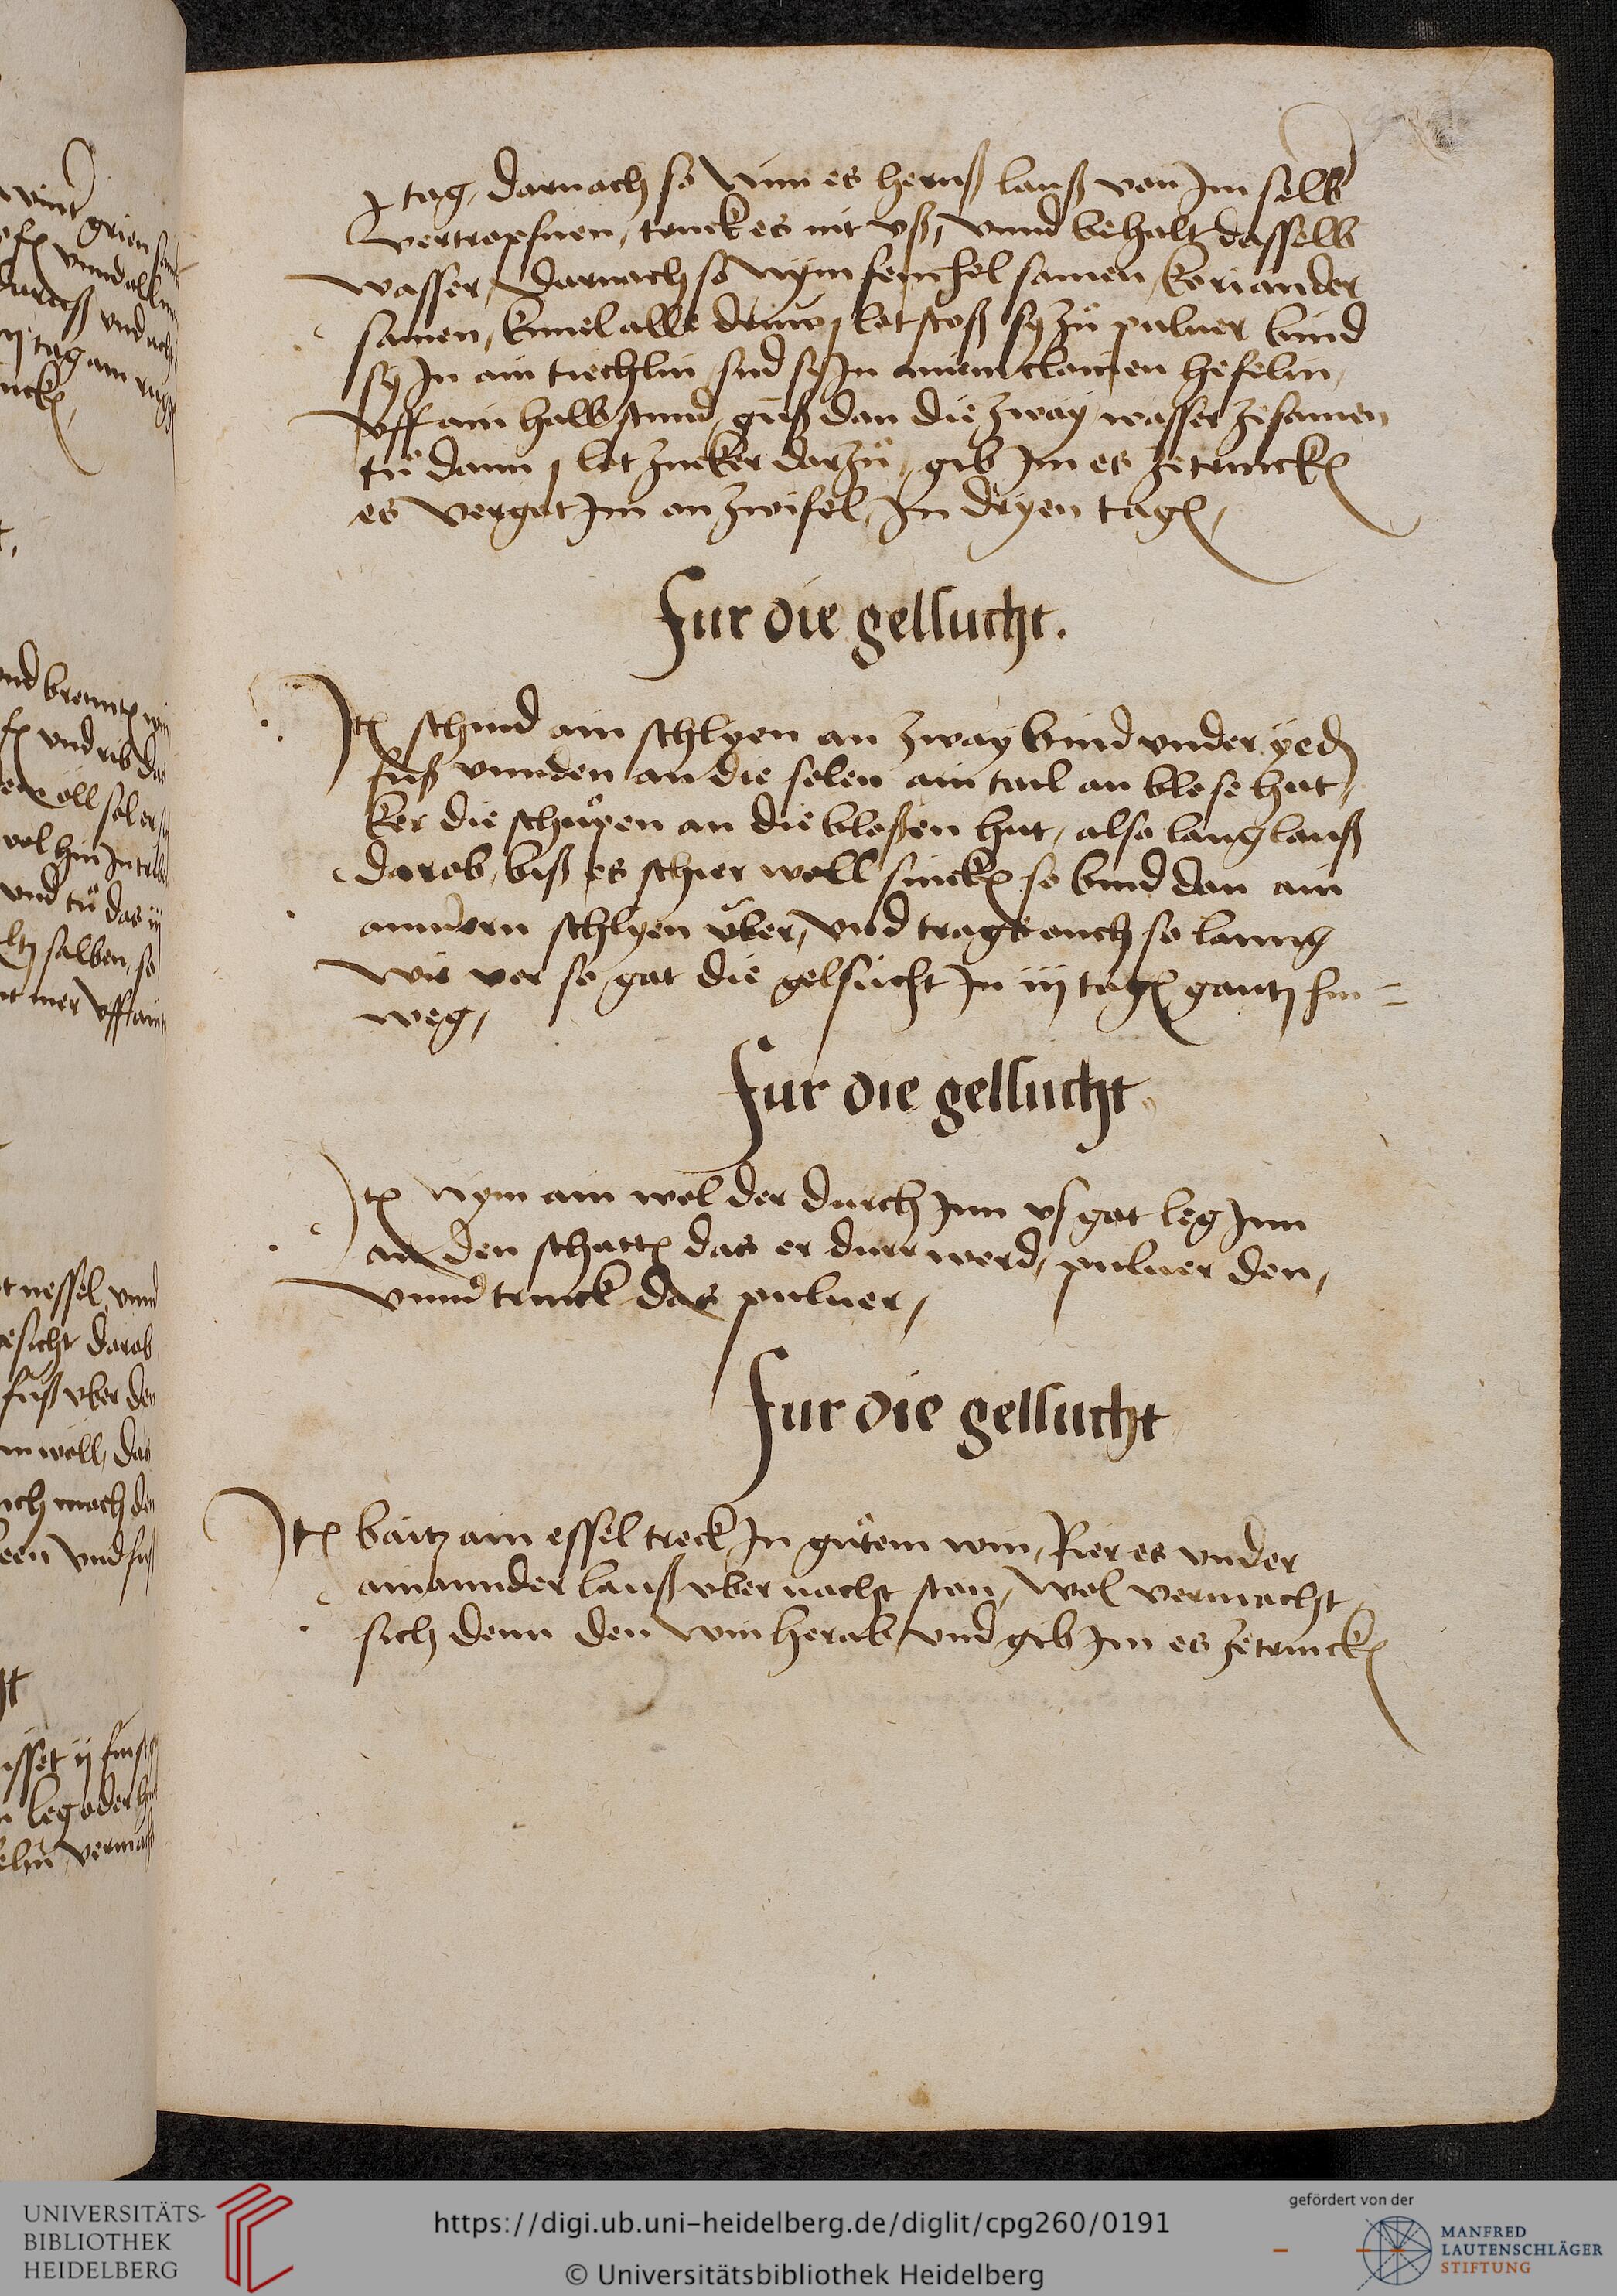 j tag, darnach so nim es heruß lauß von Im selb
vertropfnen, truck es nit vß, vnnd behalt dasselb
wasser, darnach so nym fenchel samen, koriander
samen, kimel alls druw j lot stoß sy zů puluer bind
sy In ain tiechlin sud sy In ainem clainen hefelin,
vff ain halb stund, güß dan die zway wasser zesamen
tů dann j lot zucker darzů, gib Im es zetrincken
es vergat Im on zwifel, In dryen tagen,
Fur die gelsucht.
Item schind ain schlyen an zway bind vnder yeden
fuß vnnden an die solen ain tail an blose hut,
ker die schůpen an die bloßen hut, also lang lauß
darob, biß es schier woll stincken so bind dan ain
anndern schlyen über, vnd trags ouch so lanng
wie vor so gat die gelsücht In iij tagen gantz hin=
weg,
Fur die gelsucht
Item nym ain wol der durch Inn vs gat leg Inn
an den schatten das er durr werd, puluer den,
vnnd trinck das puluer,
Fur die gelsucht
Item baitz ain essel treck In gůtem win, Rier es vnder
ainannder lauß vber nacht ston, wol vermacht,
sich denn den win herab, vnd gib Im es zetrincken
UNIVERSITÄTS-
BIBLIOTHEK
HEIDELBERG
https://digi.ub.uni-heidelberg.de/diglit/cpg260/0191
© Universitätsbibliothek Heidelberg
gefördert von der
MANFRED
LAUTENSCHLÄGER
STIFTUNG